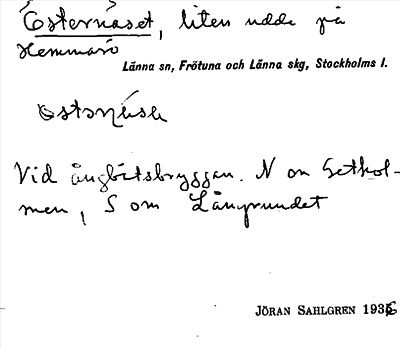 Östernäset, liten udde på
Hemmarö
Länna sn, Frötuna och Länna skg, Stockholms l.
Vid ångbåtsbryggan. N om Gethol-
men, S om Långrundet
JÖRAN SAHLGREN 1936